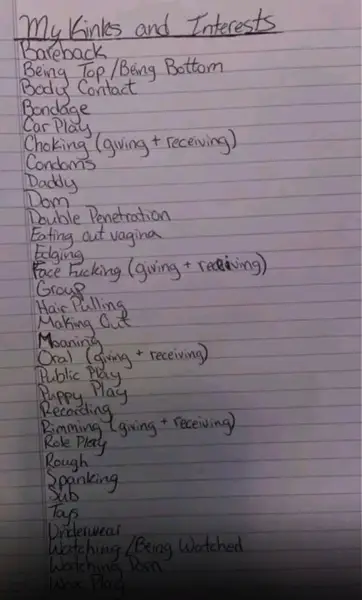 My Kinks and Interests
Bareback
Being Top/Being Bottom
Body Contact
Bondage
Car Play
Choking (giving + receiving)
Condoms
Daddy
Dom
Double Penetration
Eating out vagina
Edging
Face Fucking (giving + receiving)
Group
Hair Pulling
Making Out
Moaning
Oral (giving + receiving)
Public Play
Puppy Play
Recording
Rimming (giving + receiving)
Role Play
Rough
Spanking
Sub
Toys
Underwear
Watching/Being Watched
Watching Porn
Wax Play